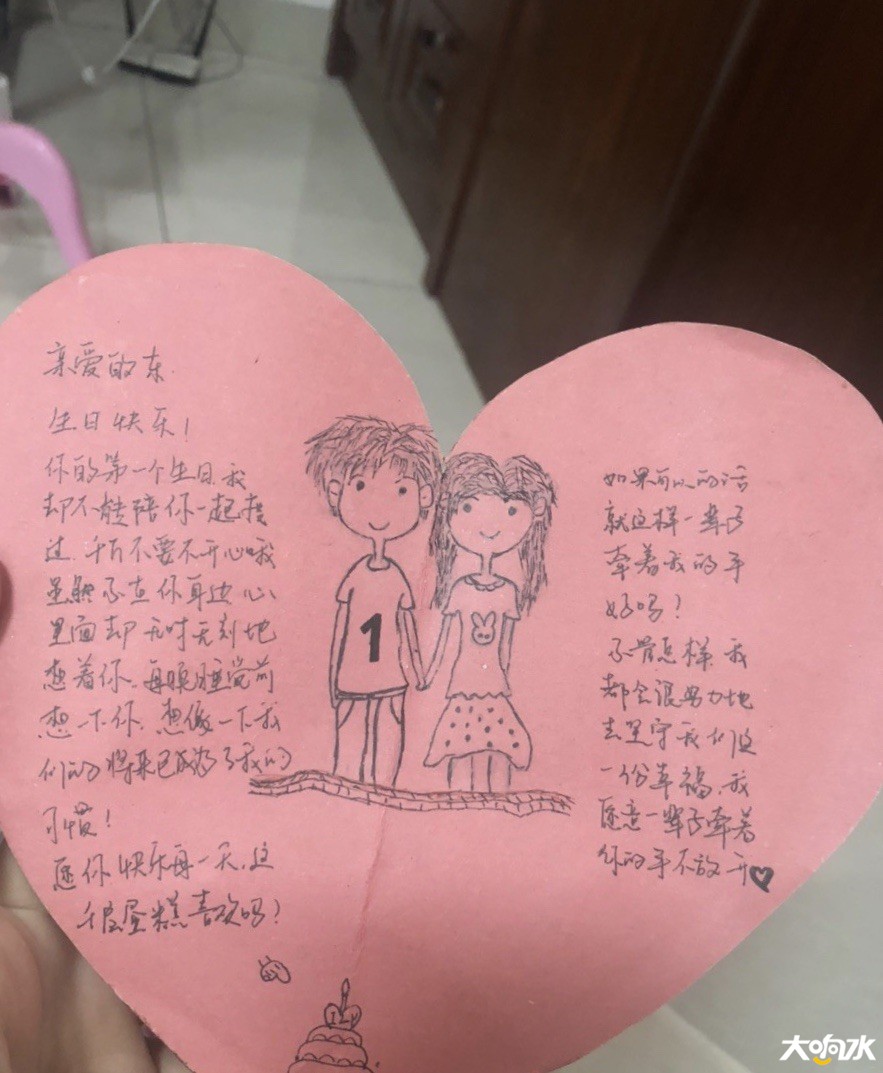 亲爱的东
生日快乐！
你的第一个生日，我
却不能陪你一起度
过，千万不要不开心哦，我
虽然不在你身边，心
里面却无时无刻地
想着你，每晚睡觉前
想一下你，想像一下我
们的将来已成为了我的
习惯！
愿你快乐每一天，这
千层蛋糕喜欢吗？
1
如果可以的话
就这样一辈子
牵着我的手
好吗？
不管怎样，我
都会很努力地
去坚守我们这
一份幸福，我
愿意一辈子牵着
你的手不放开
大响水